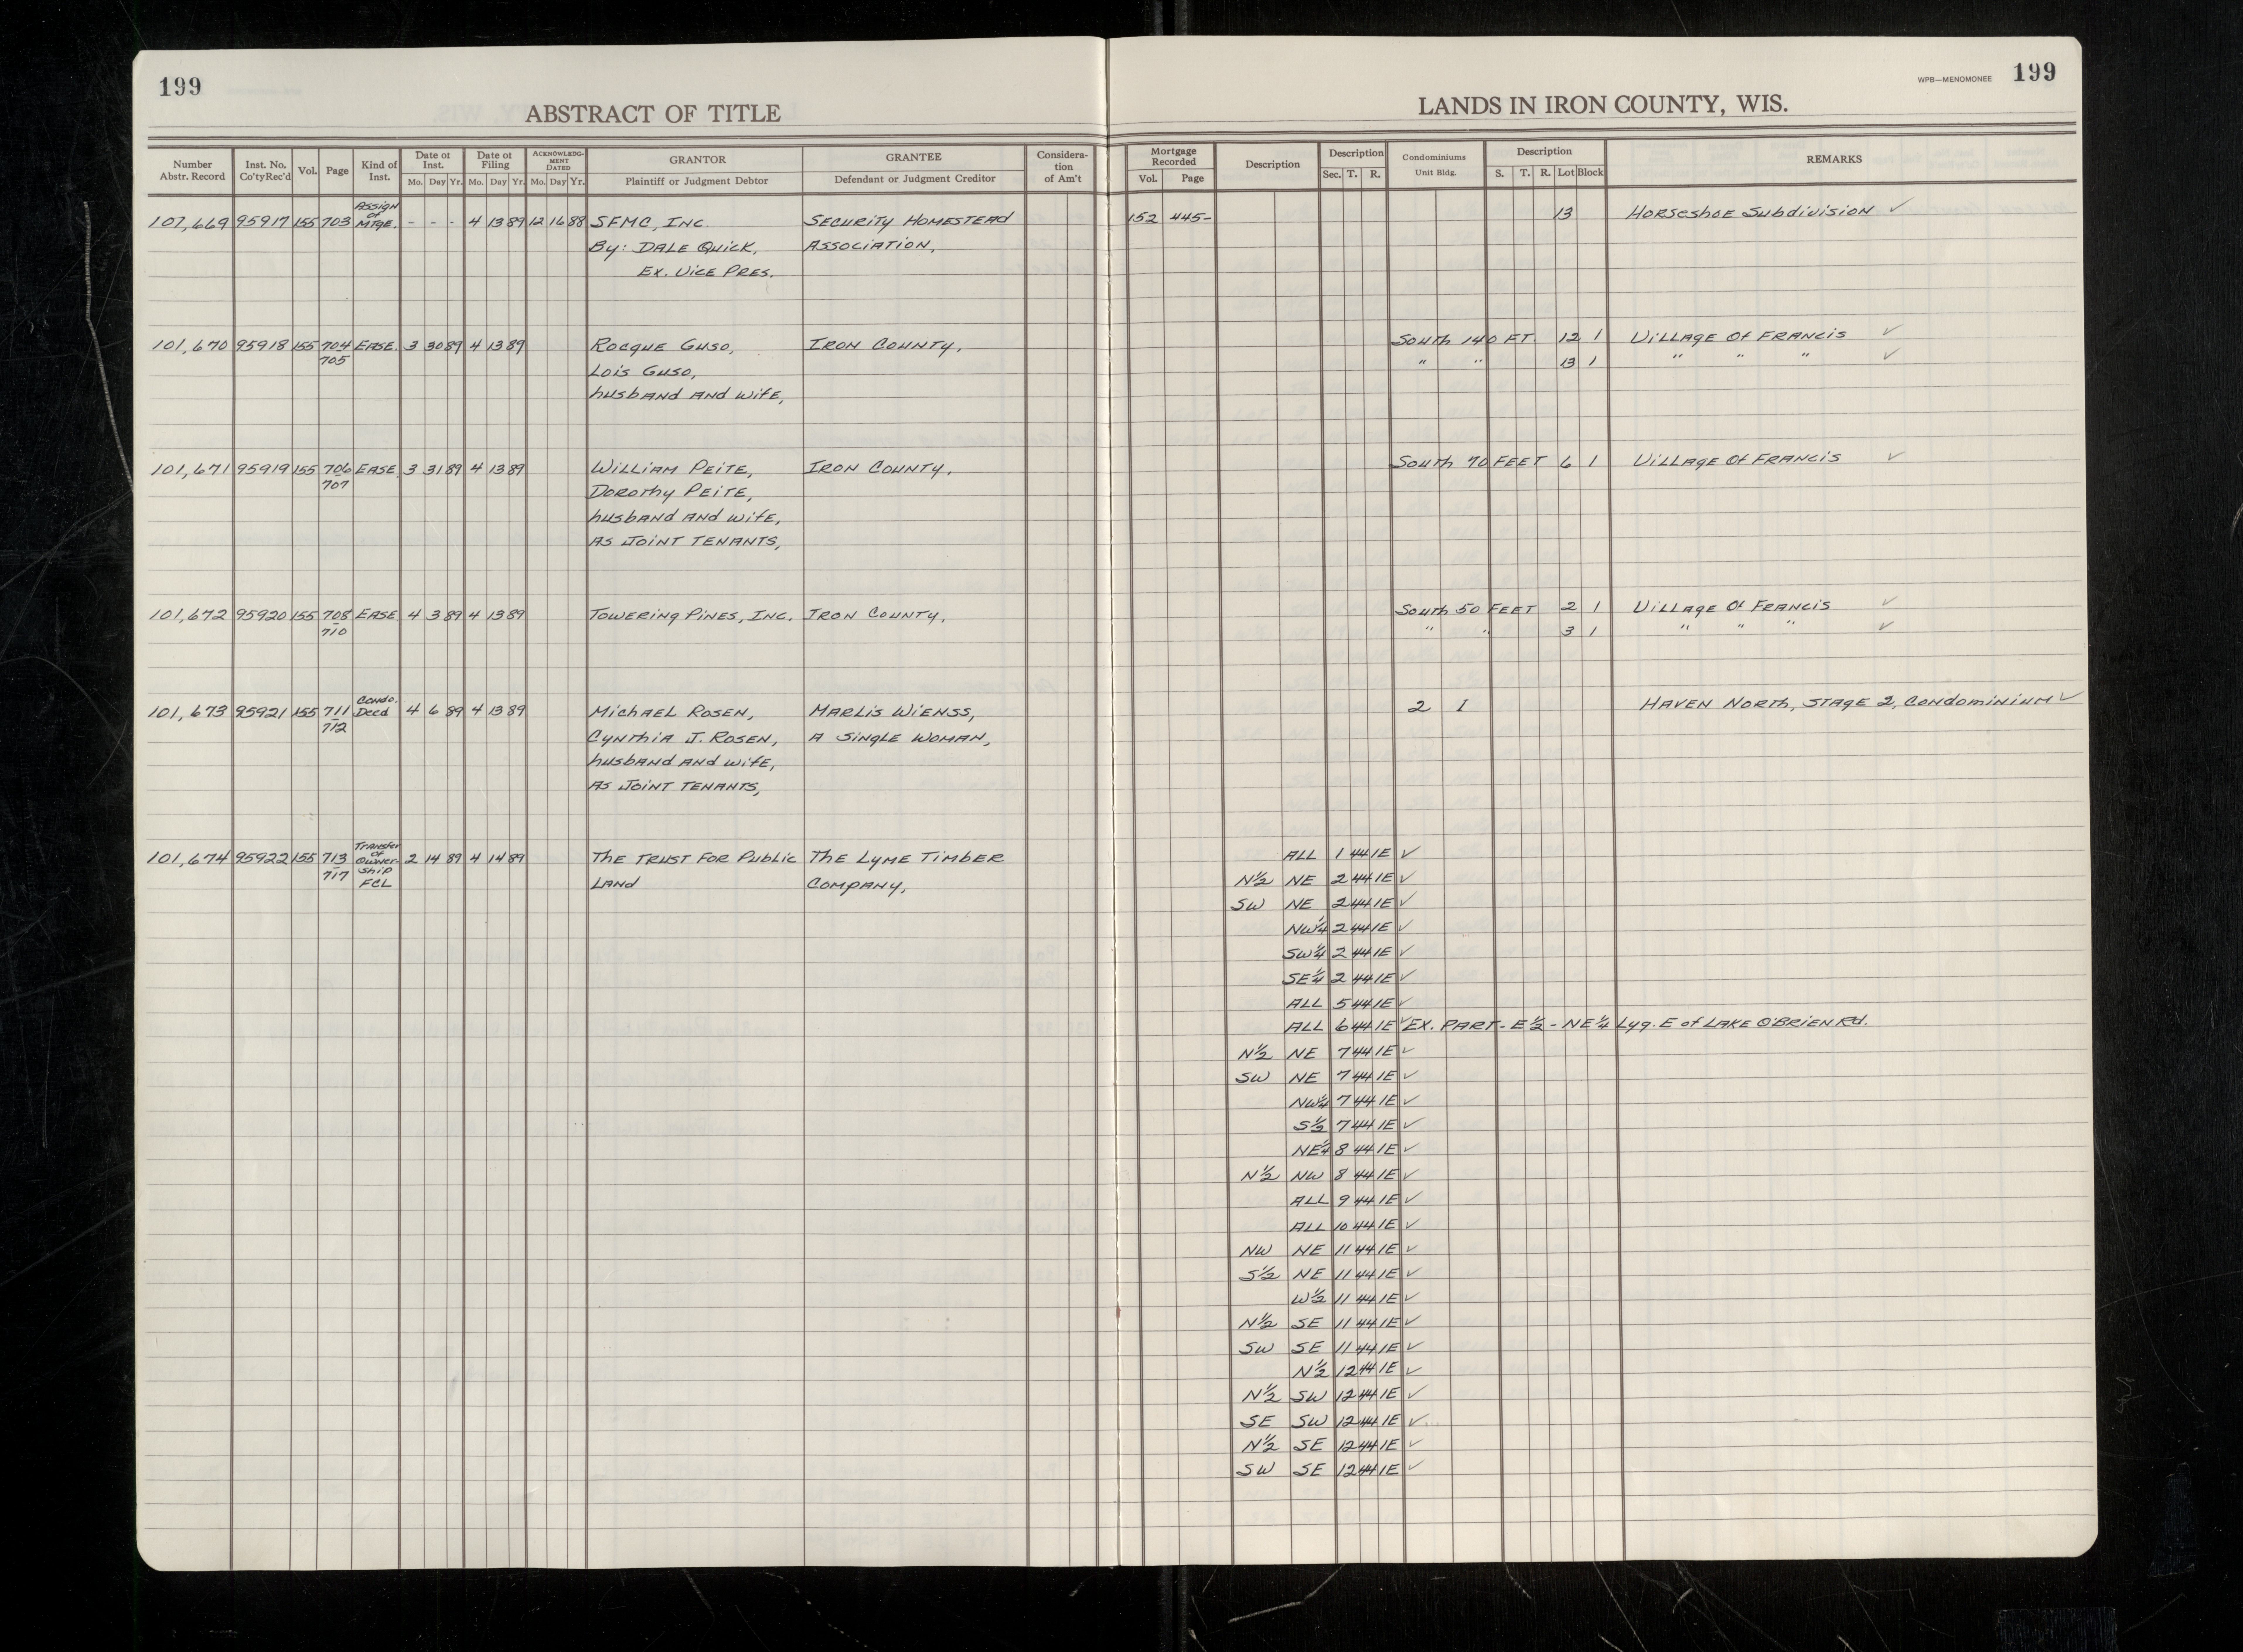 199
ABSTRACT OF TITLE
WPB—MENOMONEE 199
LANDS IN IRON COUNTY, WIS.
Number Abstr. Record | Inst. No. Co'ty Rec'd | Vol. | Page | Kind of Inst. | Date of Inst. Mo. Day Yr. | Date of Filing Mo. Day Yr. | ACKNOWLEDG-MENT DATED Mo. Day Yr. | GRANTOR Plaintiff or Judgment Debtor | GRANTEE Defendant or Judgment Creditor | Considera-tion of Am't | Mortgage Recorded Vol. Page | Description | Description Sec. T. R. | Condominiums Unit Bldg. | Description S. T. R. Lot Block | REMARKS
101,669 95917 155 703 Assign of Mtge. - - - 4 13 89 12 16 88 SFMC, INC. SECURITY HOMESTEAD 152 445- 13 HORSESHOE Subdivision ✓
By: DALE QUICK, ASSOCIATION,
EX. VICE PRES.
101,670 95918 155 704 EASE. 3 30 89 4 13 89 ROCQUE GUSO, IRON COUNTY, South 140 FT. 12 1 VILLAGE OF FRANCIS ✓
705 LOIS GUSO, " " 13 1 " " " ✓
husband AND wife,
101,671 95919 155 706 EASE. 3 31 89 4 13 89 WILLIAM PEITE, IRON COUNTY, South 70 FEET 6 1 VILLAGE OF FRANCIS ✓
707 DOROTHY PEITE,
husband AND wife,
AS JOINT TENANTS,
101,672 95920 155 708 EASE 4 3 89 4 13 89 TOWERING PINES, INC. IRON COUNTY, South 50 FEET 2 1 VILLAGE OF FRANCIS ✓
710 " " 3 1 " " " ✓
101,673 95921 155 711 Condo. Deed 4 6 89 4 13 89 MICHAEL ROSEN, MARLIS WIENSS, 2 I HAVEN NORTH, STAGE 2, CONDOMINIUM ✓
712 CYNTHIA J. ROSEN, A SINGLE WOMAN,
husband AND wife,
AS JOINT TENANTS,
101,674 95922 155 713 Transfer of Owner-ship FCL 2 14 89 4 14 89 THE TRUST FOR PUBLIC THE LYME TIMBER ALL 1 44 1E ✓
717 LAND COMPANY, N½ NE 2 44 1E ✓
SW NE 2 44 1E ✓
NW¼ 2 44 1E ✓
SW¼ 2 44 1E ✓
SE¼ 2 44 1E ✓
ALL 5 44 1E ✓
ALL 6 44 1E ✓ EX. PART - E½ - NE¼ Lyg. E of LAKE O'BRIEN Rd.
N½ NE 7 44 1E ✓
SW NE 7 44 1E ✓
NW¼ 7 44 1E ✓
S½ 7 44 1E ✓
NE¼ 8 44 1E ✓
N½ NW 8 44 1E ✓
ALL 9 44 1E ✓
ALL 10 44 1E ✓
NW NE 11 44 1E ✓
S½ NE 11 44 1E ✓
W½ 11 44 1E ✓
N½ SE 11 44 1E ✓
SW SE 11 44 1E ✓
N½ 12 44 1E ✓
N½ SW 12 44 1E ✓
SE SW 12 44 1E ✓
N½ SE 12 44 1E ✓
SW SE 12 44 1E ✓